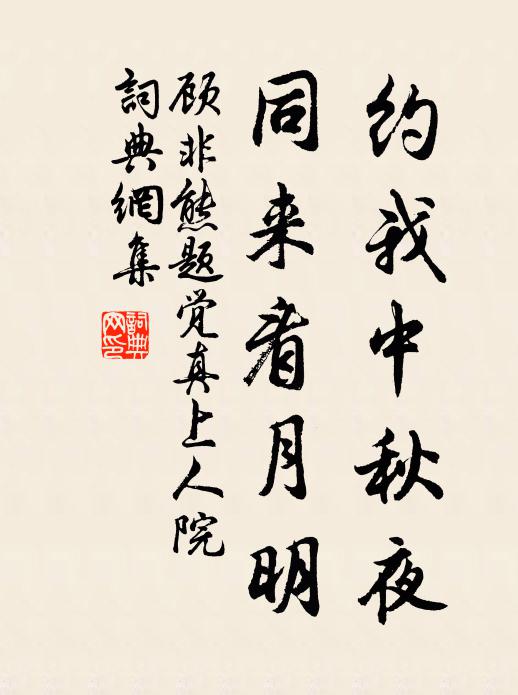 约我中秋夜
同来看月明
顾非熊题觉真上人院
詞典網集
詞典网印